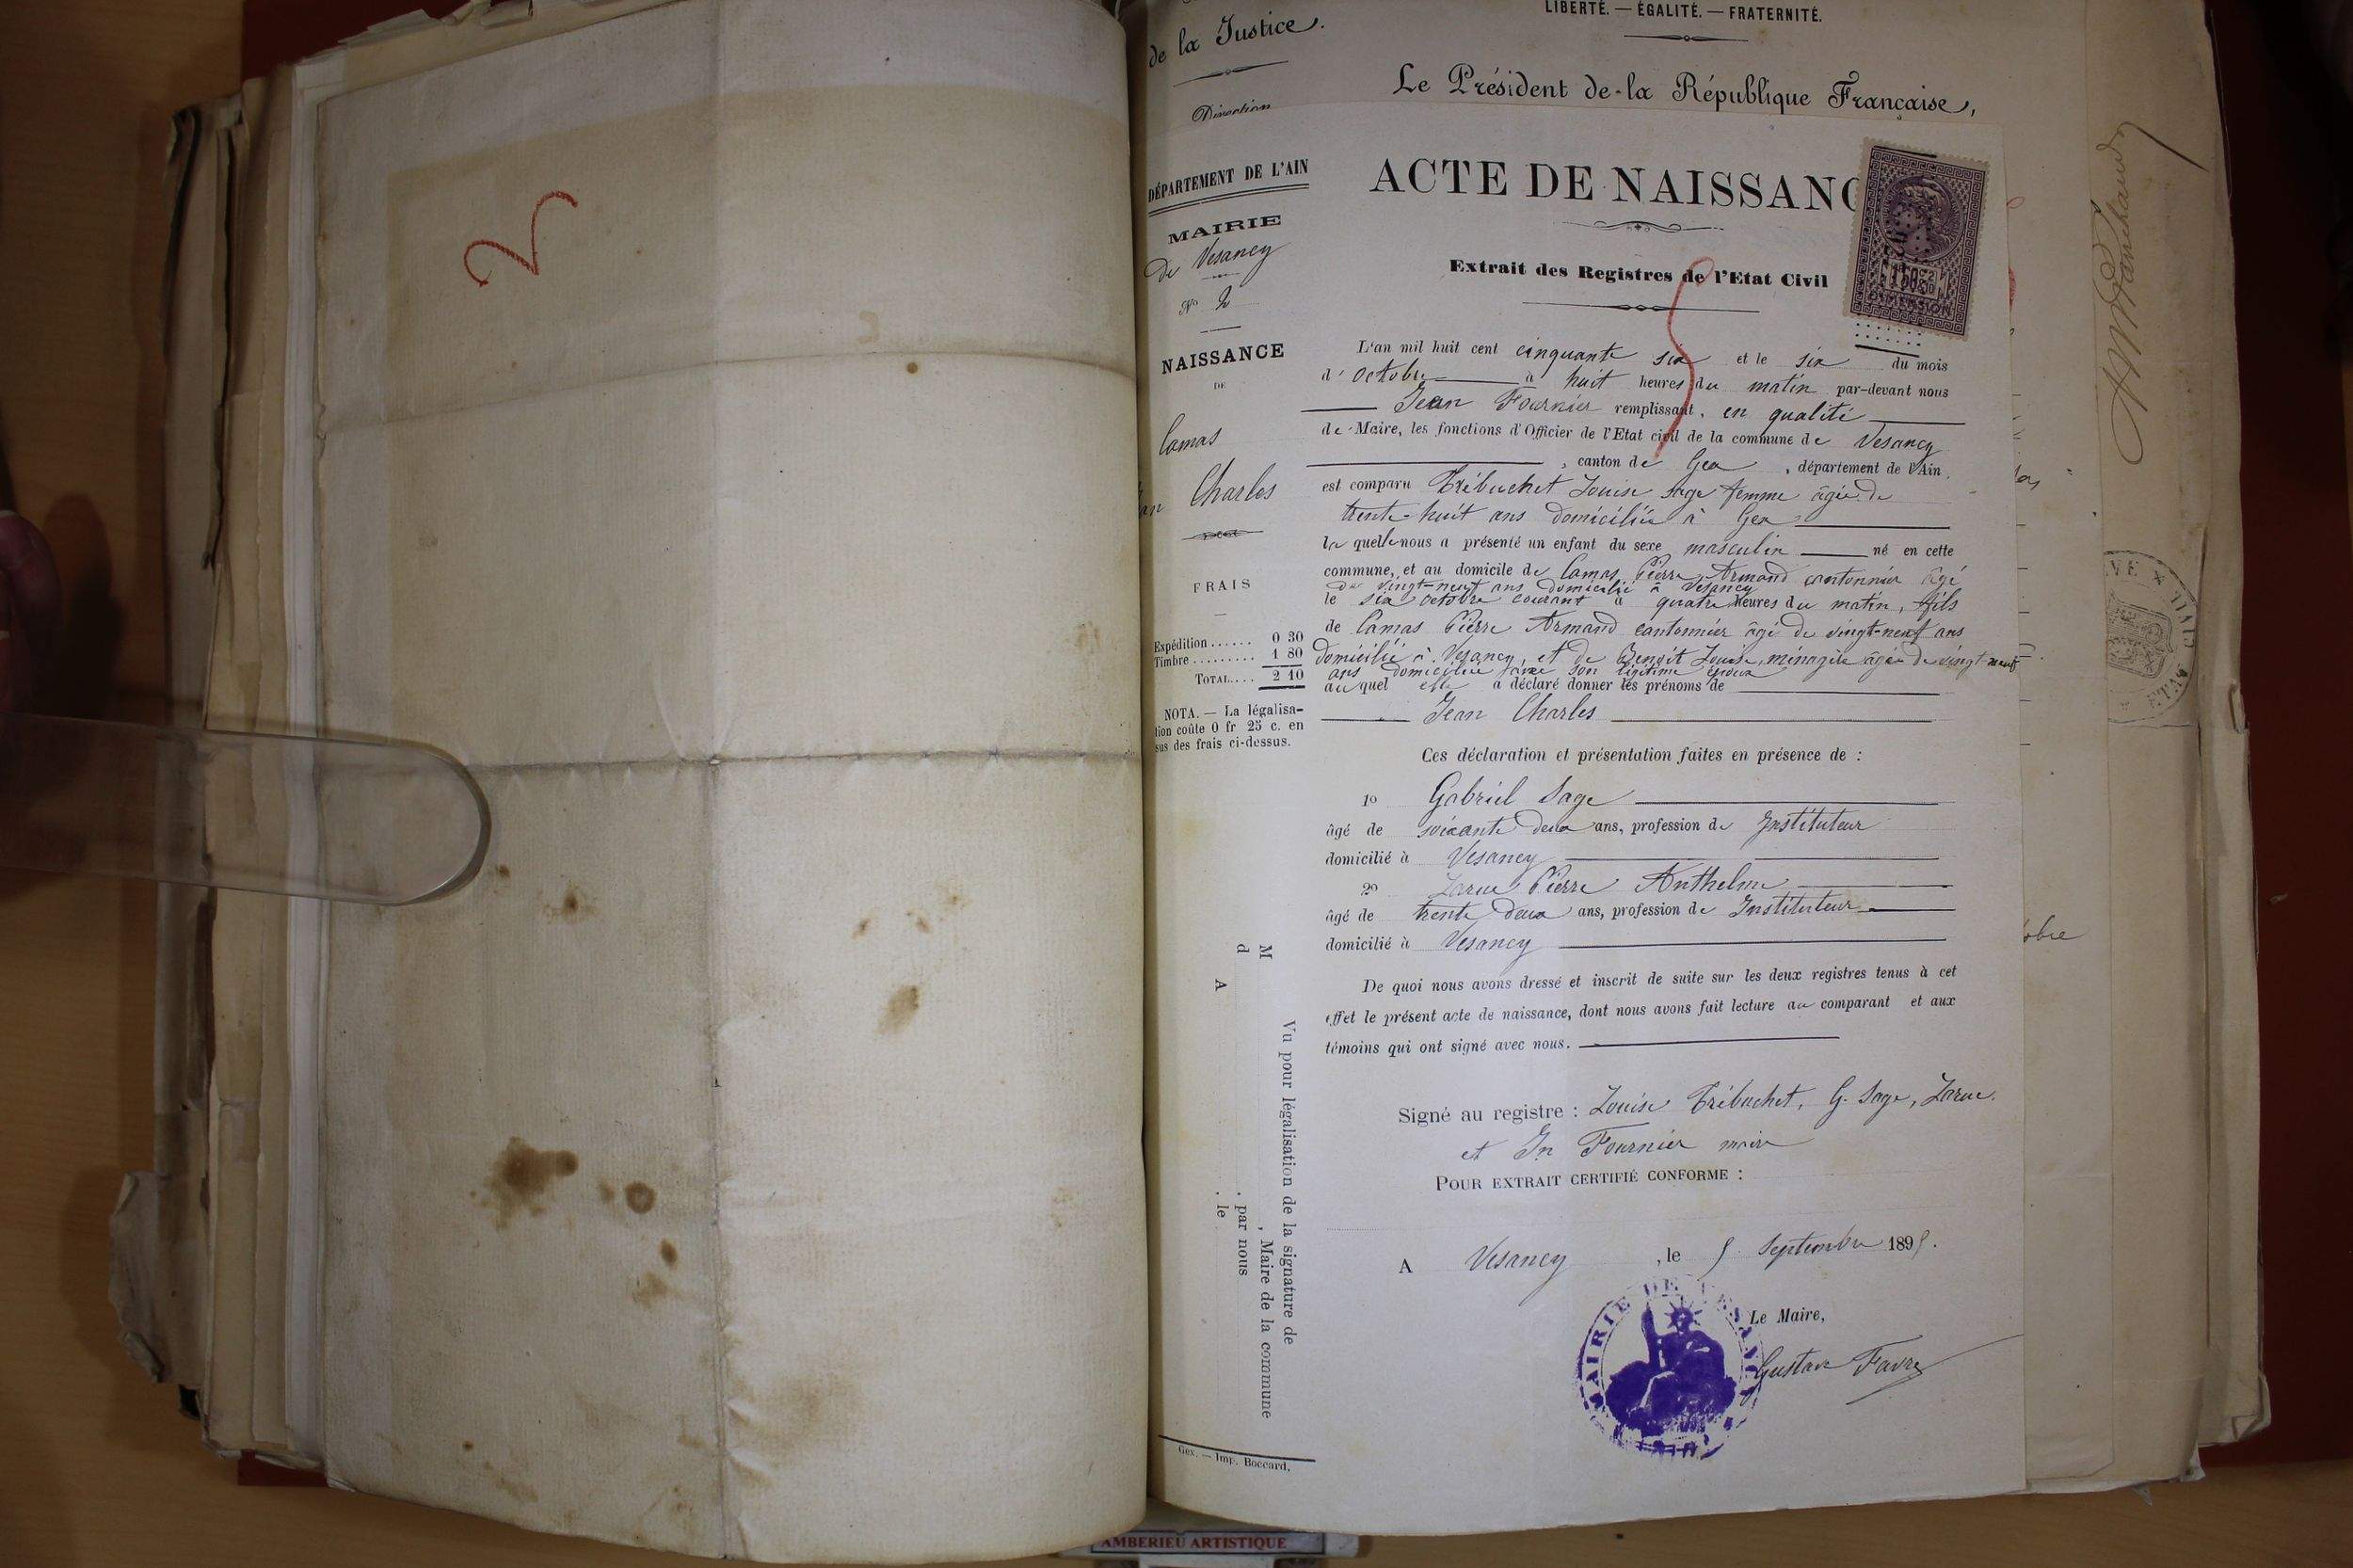 2
de la Justice.
Direction
LIBERTÉ. — ÉGALITÉ. — FRATERNITÉ.
Le Président de la République Française,
DÉPARTEMENT DE L'AIN
MAIRIE
De Vesancy
No 2
NAISSANCE
DE
Lamas
Charles
FRAIS
Expédition ...... 0 30
Timbre ......... 1 80
TOTAL.... 2 10
NOTA. — La légalisa-
tion coûte 0 fr 25 c. en
sus des frais ci-dessus.
ACTE DE NAISSANC
Extrait des Registres de l'Etat Civil
L'an mil huit cent cinquante six et le six du mois
d' octobre à huit heures du matin par-devant nous
Jean Fournier remplissant, en qualité
de Maire, les fonctions d'Officier de l'Etat civil de la commune de Vesancy
, canton de Gex , département de l'Ain.
est comparu Trébuchet Louise sage femme âgée de
trente-huit ans domiciliée à Gex
la quelle nous a présenté un enfant du sexe masculin né en cette
commune, et au domicile de Lamas Pierre Armand cantonnier âgé
de vingt-neuf ans domicilié à Vesancy
le six octobre courant à quatre heures du matin, fils
de Lamas Pierre Armand cantonnier âgé de vingt-neuf ans
domicilié à Vesancy, et de Benoit Louise, ménagère âgée de vingt-neuf
ans domiciliée avec son légitime époux
auquel elle a déclaré donner les prénoms de
Jean Charles
Ces déclaration et présentation faites en présence de :
1o Gabriel Sage
âgé de soixante deux ans, profession de Instituteur
domicilié à Vesancy
2o Larue Pierre Anthelme
âgé de trente deux ans, profession de Instituteur
domicilié à Vesancy
De quoi nous avons dressé et inscrit de suite sur les deux registres tenus à cet
effet le présent acte de naissance, dont nous avons fait lecture au comparant et aux
témoins qui ont signé avec nous.
Signé au registre : Louise Trébuchet, G. Sage, Larue.
et Jn Fournier maire
POUR EXTRAIT CERTIFIÉ CONFORME :
A Vesancy , le 5 Septembre 1895.
Le Maire,
Gustave Favre
MAIRIE DE
AIN
Vu pour légalisation de la signature de
M , Maire de la commune
d . par nous
A . le
Gex. — Imp. Boccard.
AMBERIEU ARTISTIQUE